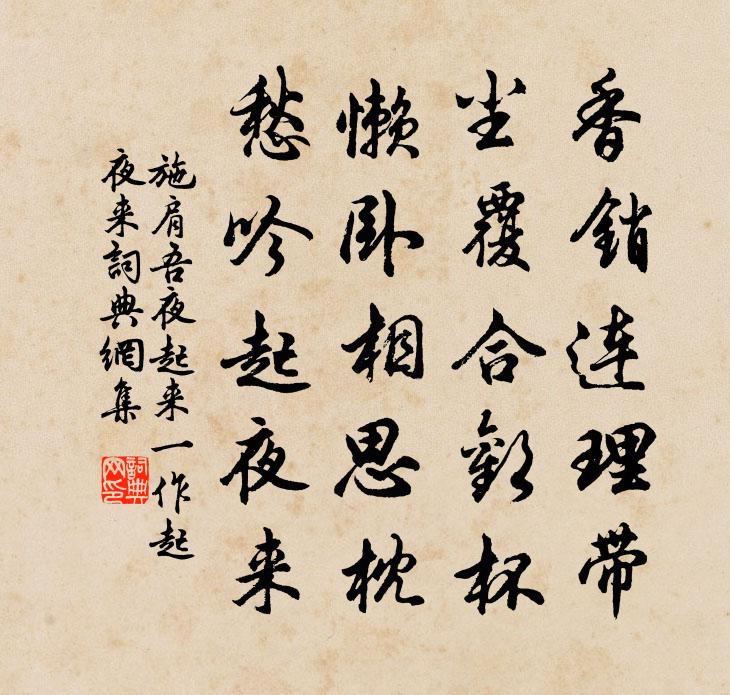 香銷连理带
尘覆合歡杯
懒卧相思枕
愁吟起夜来
施肩吾夜起来一作起
夜来詞典網集
詞典
网印